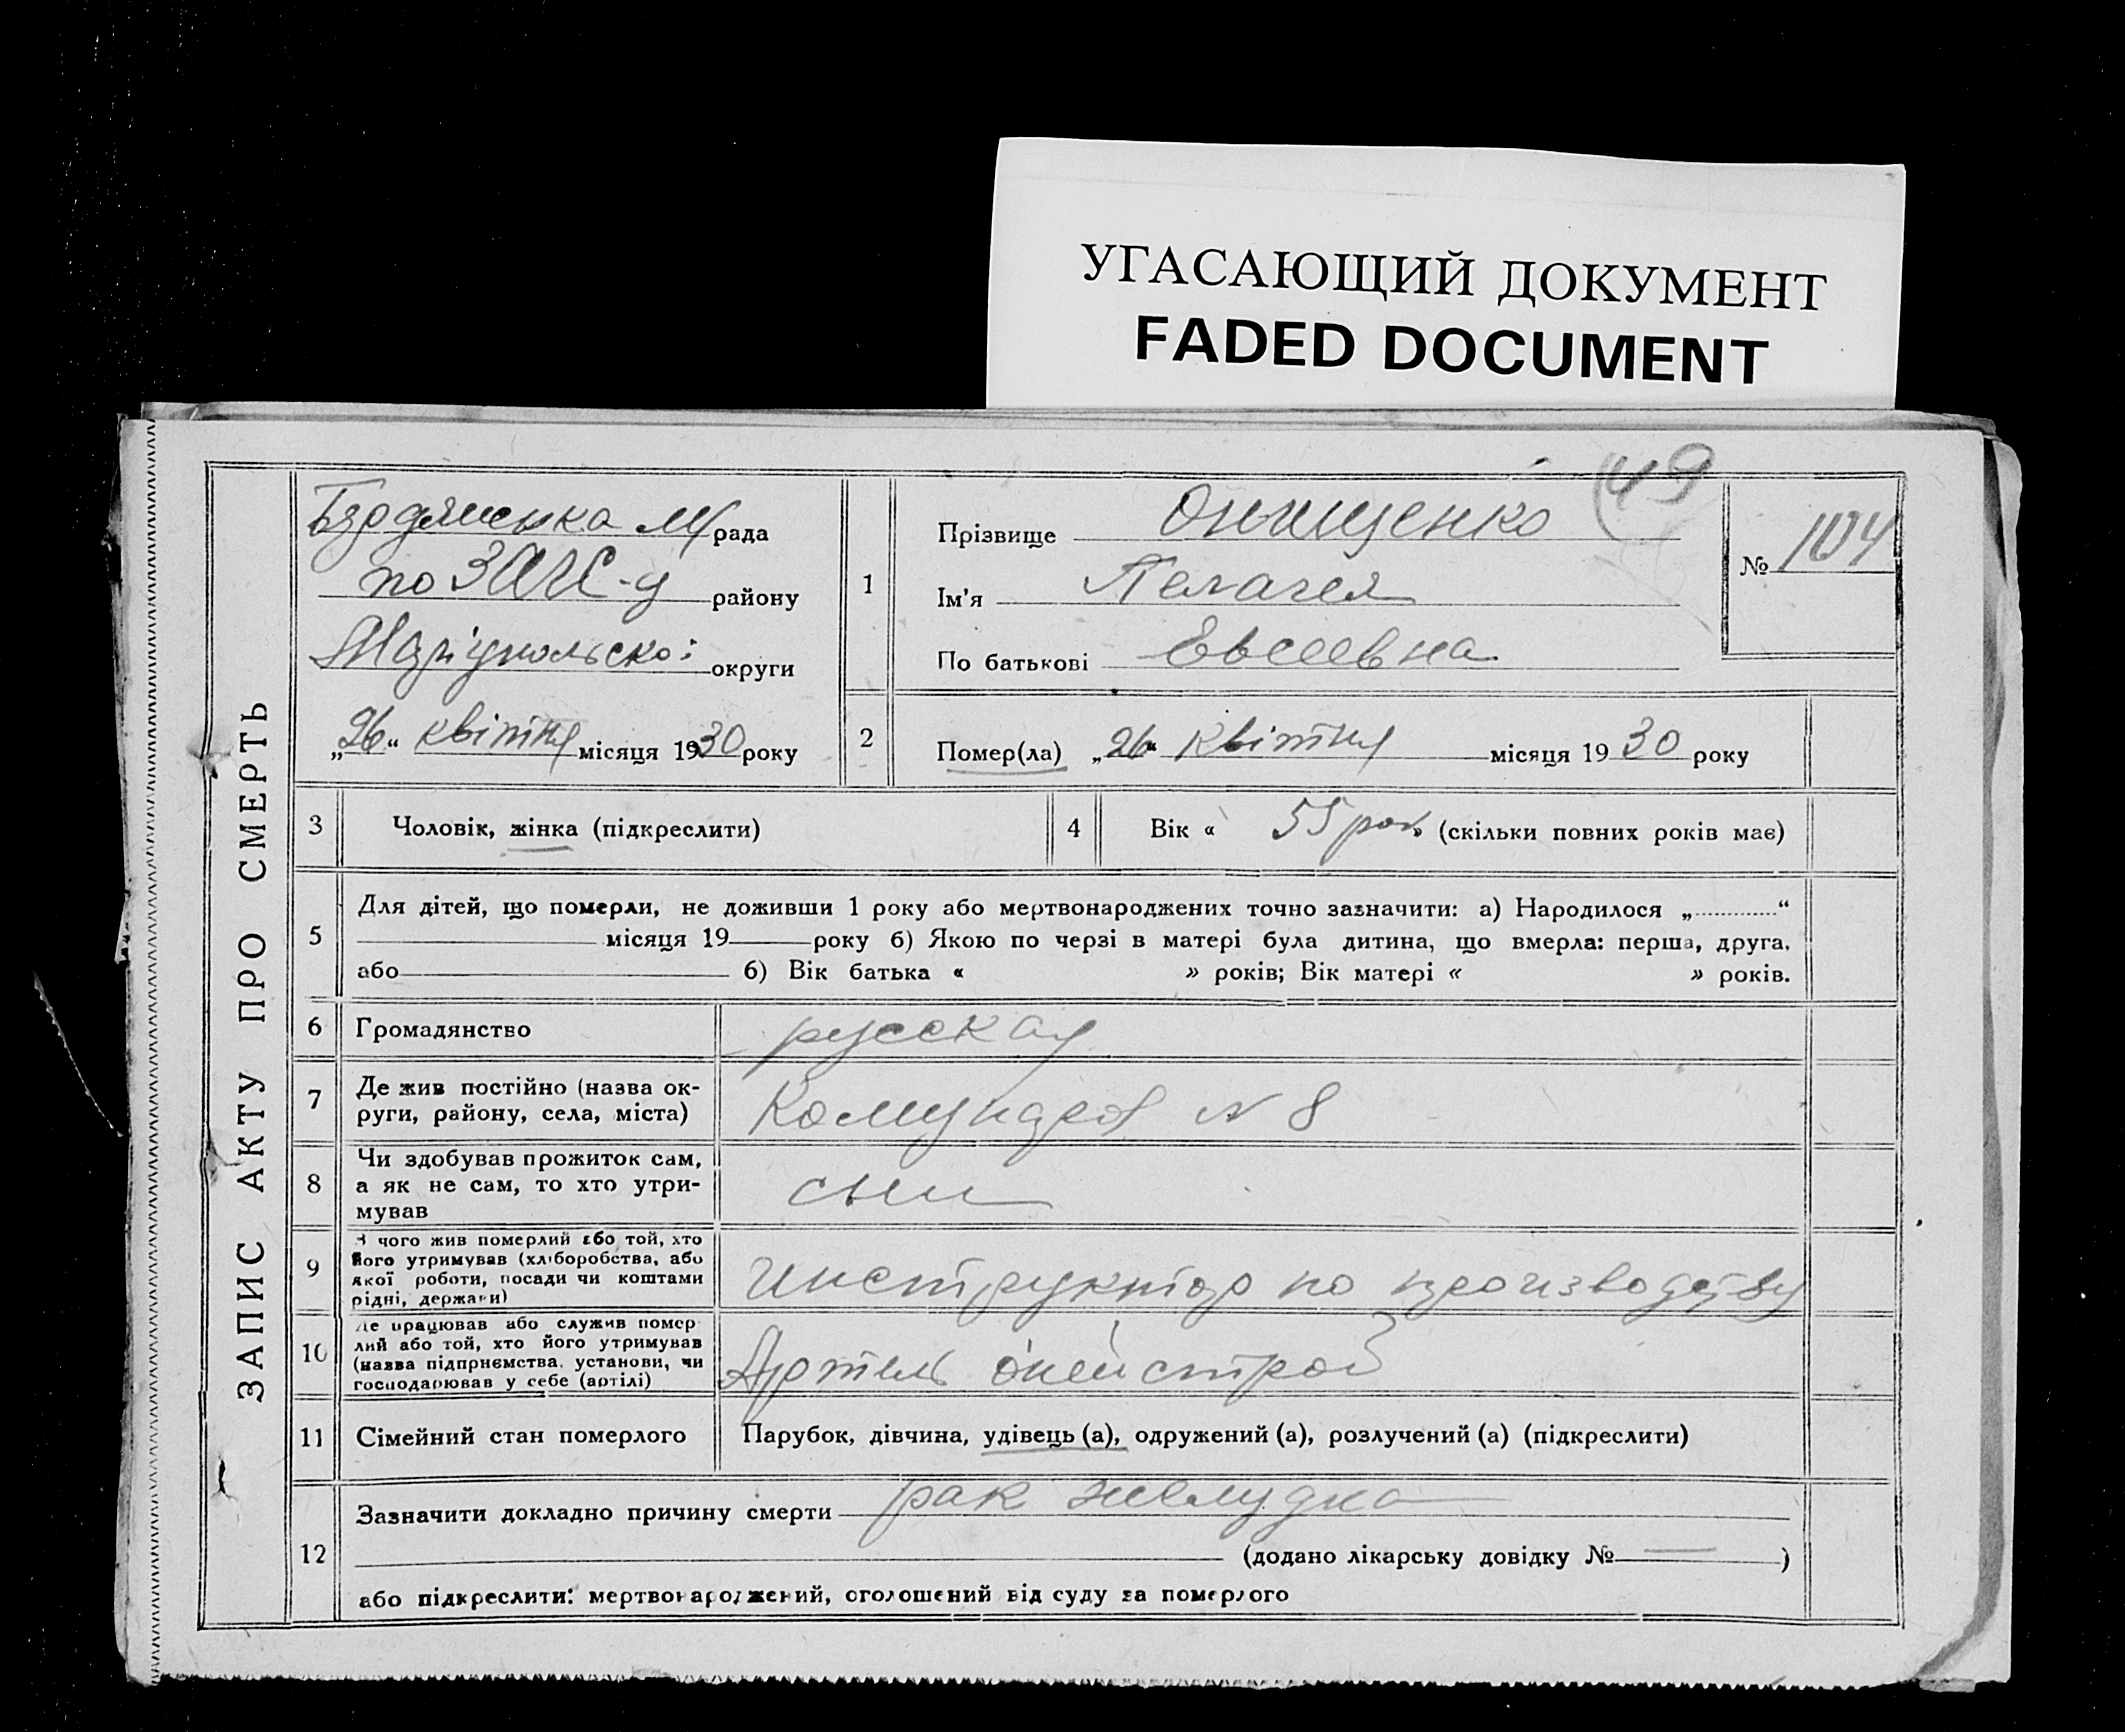 УГАСАЮЩИЙ ДОКУМЕНТ
FADED DOCUMENT
ЗАПИС АКТУ ПРО СМЕРТЬ
49
Бердянська м/рада
по ЗАГС-у району
Маріупольскої округи
„26“ квітня місяця 1930 року
1
Прізвище Онищенко
Ім'я Пелагея
По батькові Евсеевна
№ 104
2
Помер(ла) „26“ квітня місяця 1930 року
3 Чоловік, жінка (підкреслити)
4 Вік « 55 рок » (скільки повних років має)
5
Для дітей, що померли, не доживши 1 року або мертвонароджених точно зазначити: а) Народилося „ “
місяця 19 року б) Якою по черзі в матері була дитина, що вмерла: перша, друга,
або б) Вік батька « » років; Вік матері « » років.
6 Громадянство русская
7 Де жив постійно (назва ок-
руги, району, села, міста)
№ 8
8 Чи здобував прожиток сам,
а як не сам, то хто утри-
мував
сын
9 З чого жив померлий або той, хто
його утримував (хліборобства, або
якої роботи, посади чи коштами
рідні, держави)
Инструктор по производству
10 Де працював або служив помер
лий або той, хто його утримував
(назва підприємства, установи, чи
господарював у себе (артілі)
Артель
11 Сімейний стан померлого Парубок, дівчина, удівець (а), одружений (а), розлучений (а) (підкреслити)
12 Зазначити докладно причину смерти рак желудка
(додано лікарську довідку № — )
або підкреслити: мертвонароджений, оголошений від суду за померлого